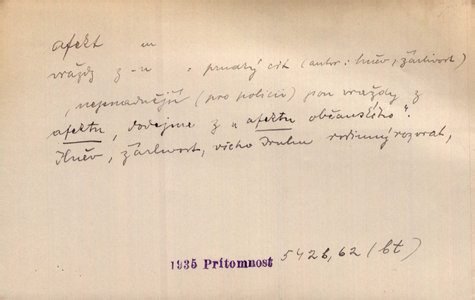 afekt m
vraždy z -u = prudký cit (autor: hněv, žárlivost)
„nejsnadnější (pro policii) jsou vraždy z
afektu, dodejme z u afektu občanského".
Hněv, žárlivost, všeho druhu rodinný rozvrat,
1935 Přítomnost 542b, 62 (bt)